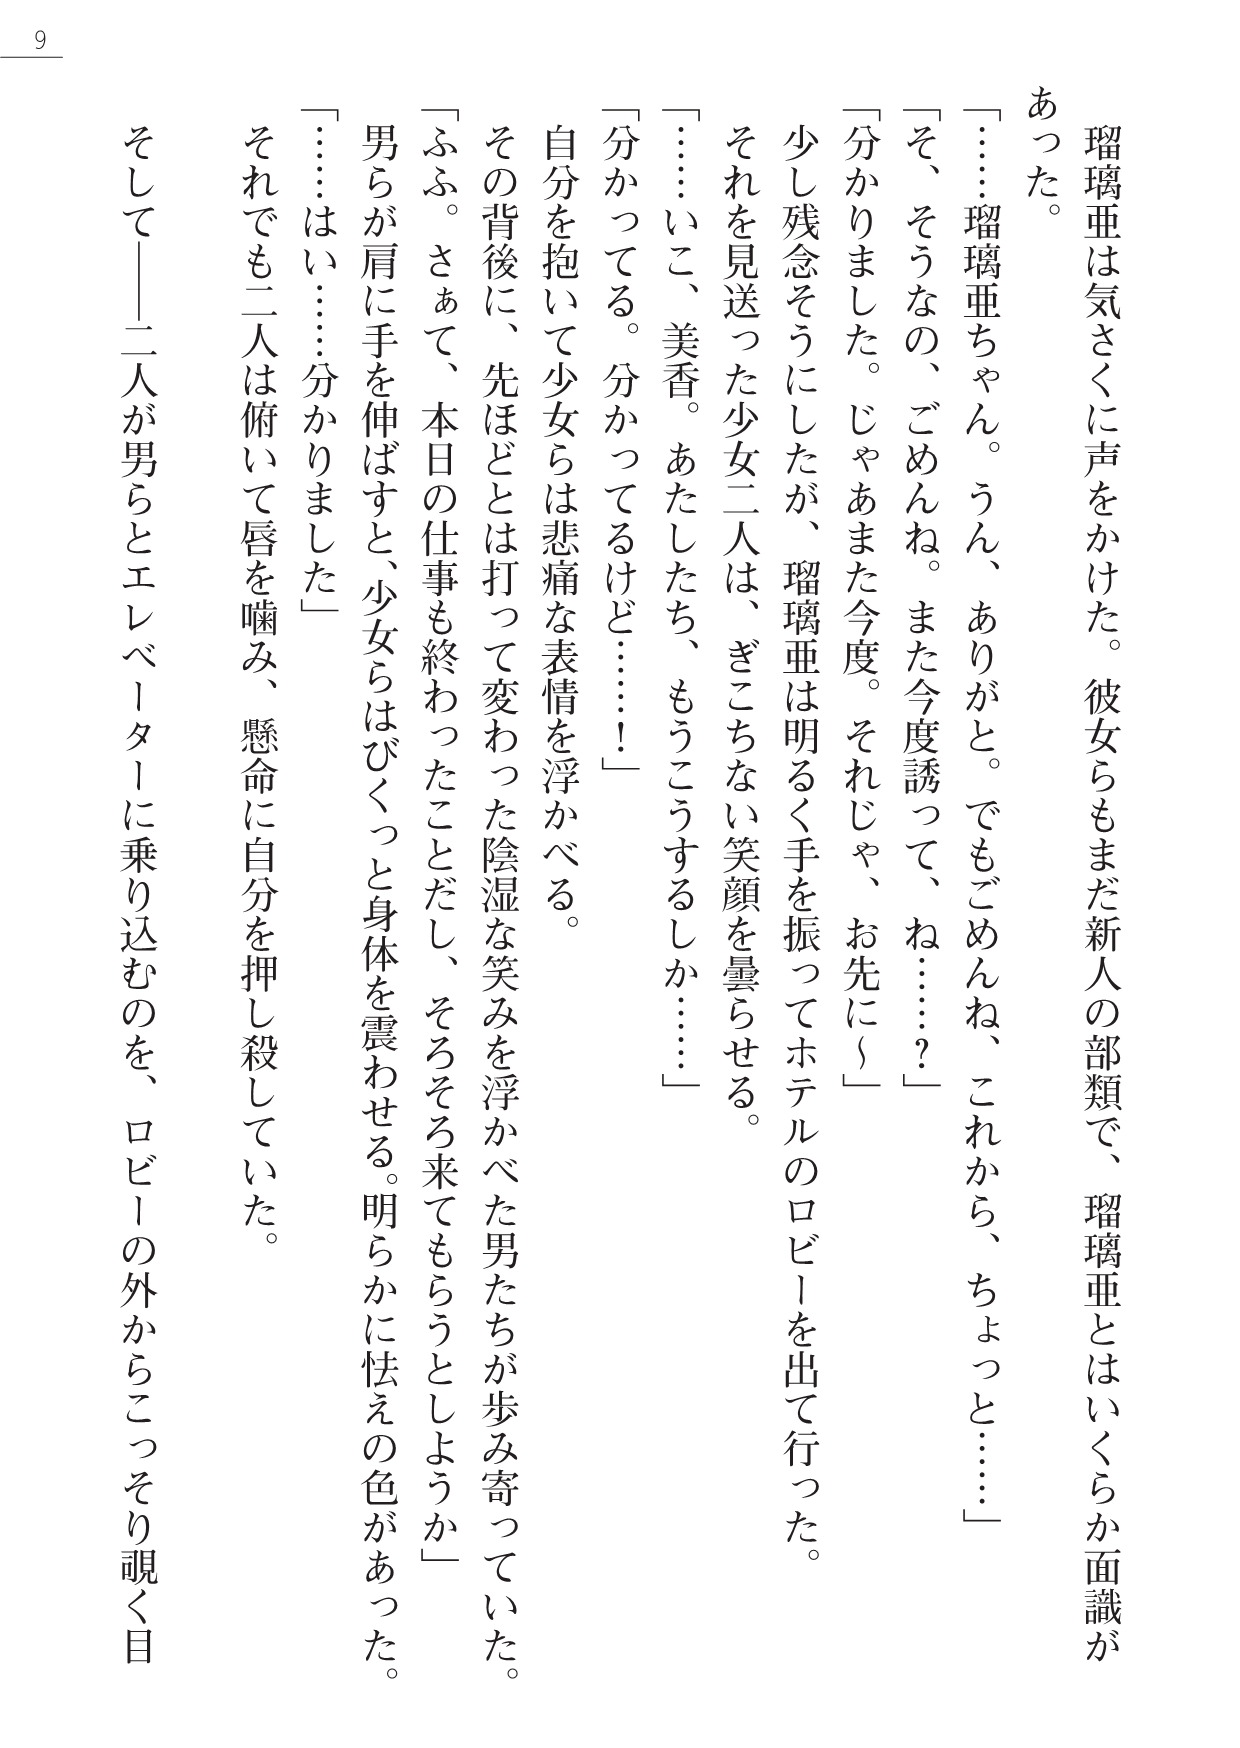 9
瑠璃亜は気さくに声をかけた。彼女らもまだ新人の部類で、瑠璃亜とはいくらか面識が
あった。
「……瑠璃亜ちゃん。うん、ありがと。でもごめんね、これから、ちょっと……」
「そ、そうなの、ごめんね。また今度誘って、ね……？」
「分かりました。じゃあまた今度。それじゃ、お先に～」
少し残念そうにしたが、瑠璃亜は明るく手を振ってホテルのロビーを出て行った。
それを見送った少女二人は、ぎこちない笑顔を曇らせる。
「……いこ、美香。あたしたち、もうこうするしか……」
「分かってる。分かってるけど……！」
自分を抱いて少女らは悲痛な表情を浮かべる。
その背後に、先ほどとは打って変わった陰湿な笑みを浮かべた男たちが歩み寄っていた。
「ふふ。さぁて、本日の仕事も終わったことだし、そろそろ来てもらうとしようか」
男らが肩に手を伸ばすと、少女らはびくっと身体を震わせる。明らかに怯えの色があった。
「……はい……分かりました」
それでも二人は俯いて唇を噛み、懸命に自分を押し殺していた。
そして――二人が男らとエレベーターに乗り込むのを、ロビーの外からこっそり覗く目